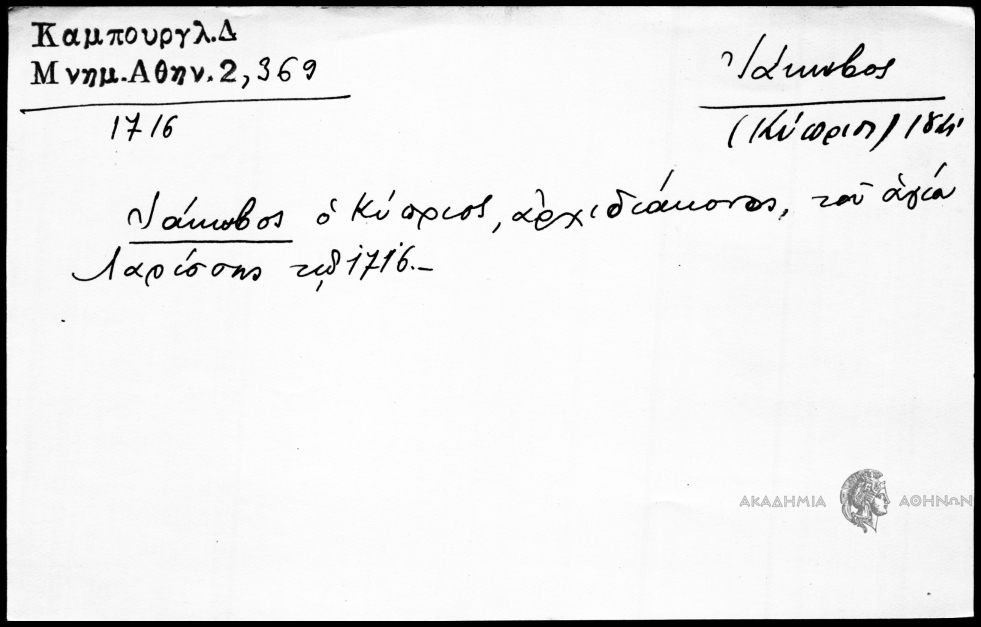 Καμπουργλ.Δ
Μνημ.Αθην.2,369
1716
Ἰάκωβος
(Κύπριος)
Ἰάκωβος ὁ Κύπριος, ἀρχιδιάκονος, τοῦ ἁγίου
Λαρίσσης τῷ 1716.-
ΑΚΑΔΗΜΙΑ ΑΘΗΝΩΝ